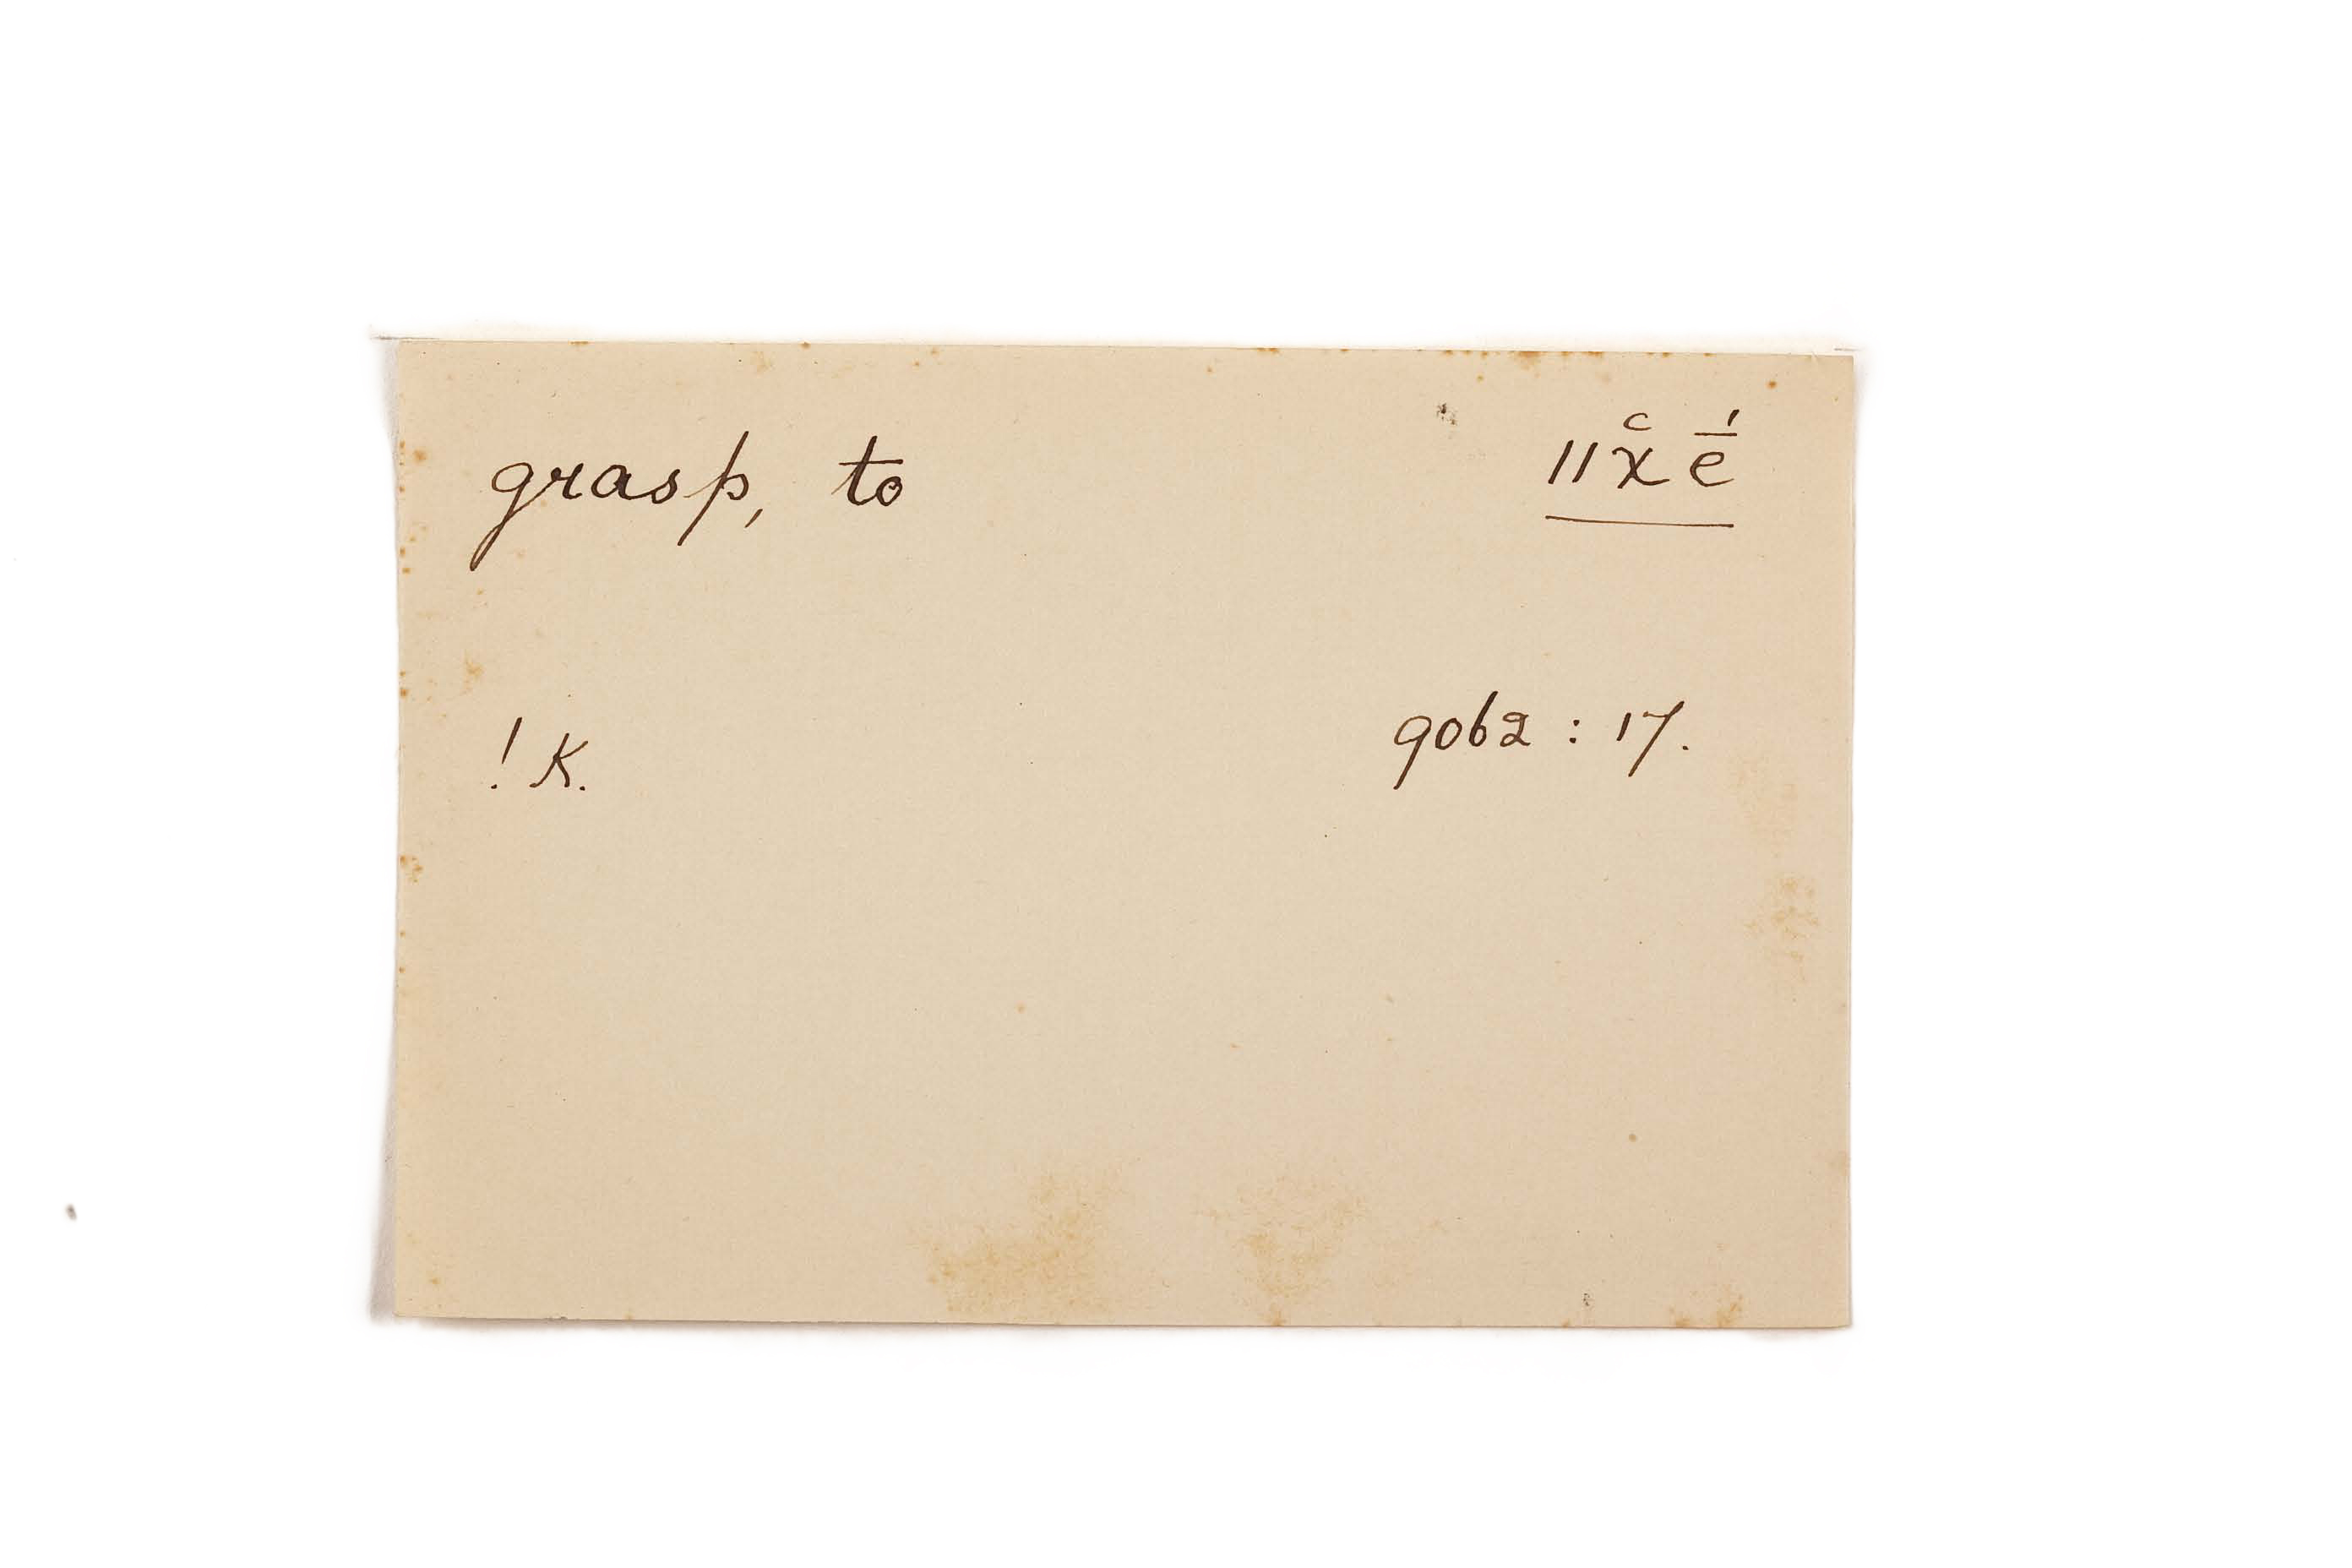 grasp, to ǁχ͑ḗ
! K. 9062 : 17.